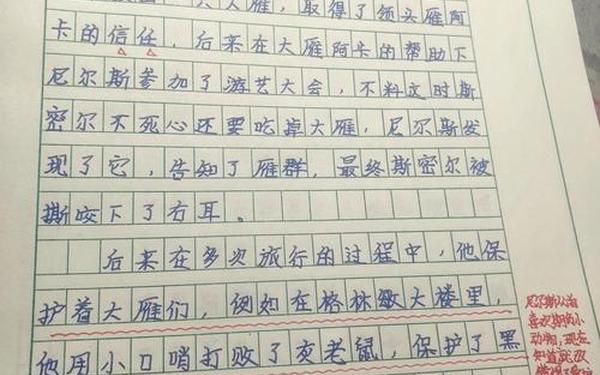 大雁，取得了领头雁阿
卡的信任，后来在大雁阿卡的帮助下
尼尔斯参加了游艺大会，不料这时斯
密尔不死心还要吃掉大雁，尼尔斯发
现了它，告知了雁群，最终斯密尔被
撕咬下了右耳。
后来在多次旅行的过程中，他保
护着大雁们，例如在格林敏大楼里，
他用小口哨打败了灰老鼠，保护了黑
尼尔斯从治
喜欢期的小
动物，现在
知道
懂得了爱护